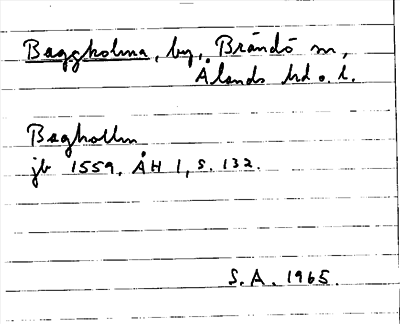 Baggholma, by, Brändö sn,
Ålands hd o. l.
Baghollm
jb 1559, ÅH 1, s. 132.
S.A. 1965.